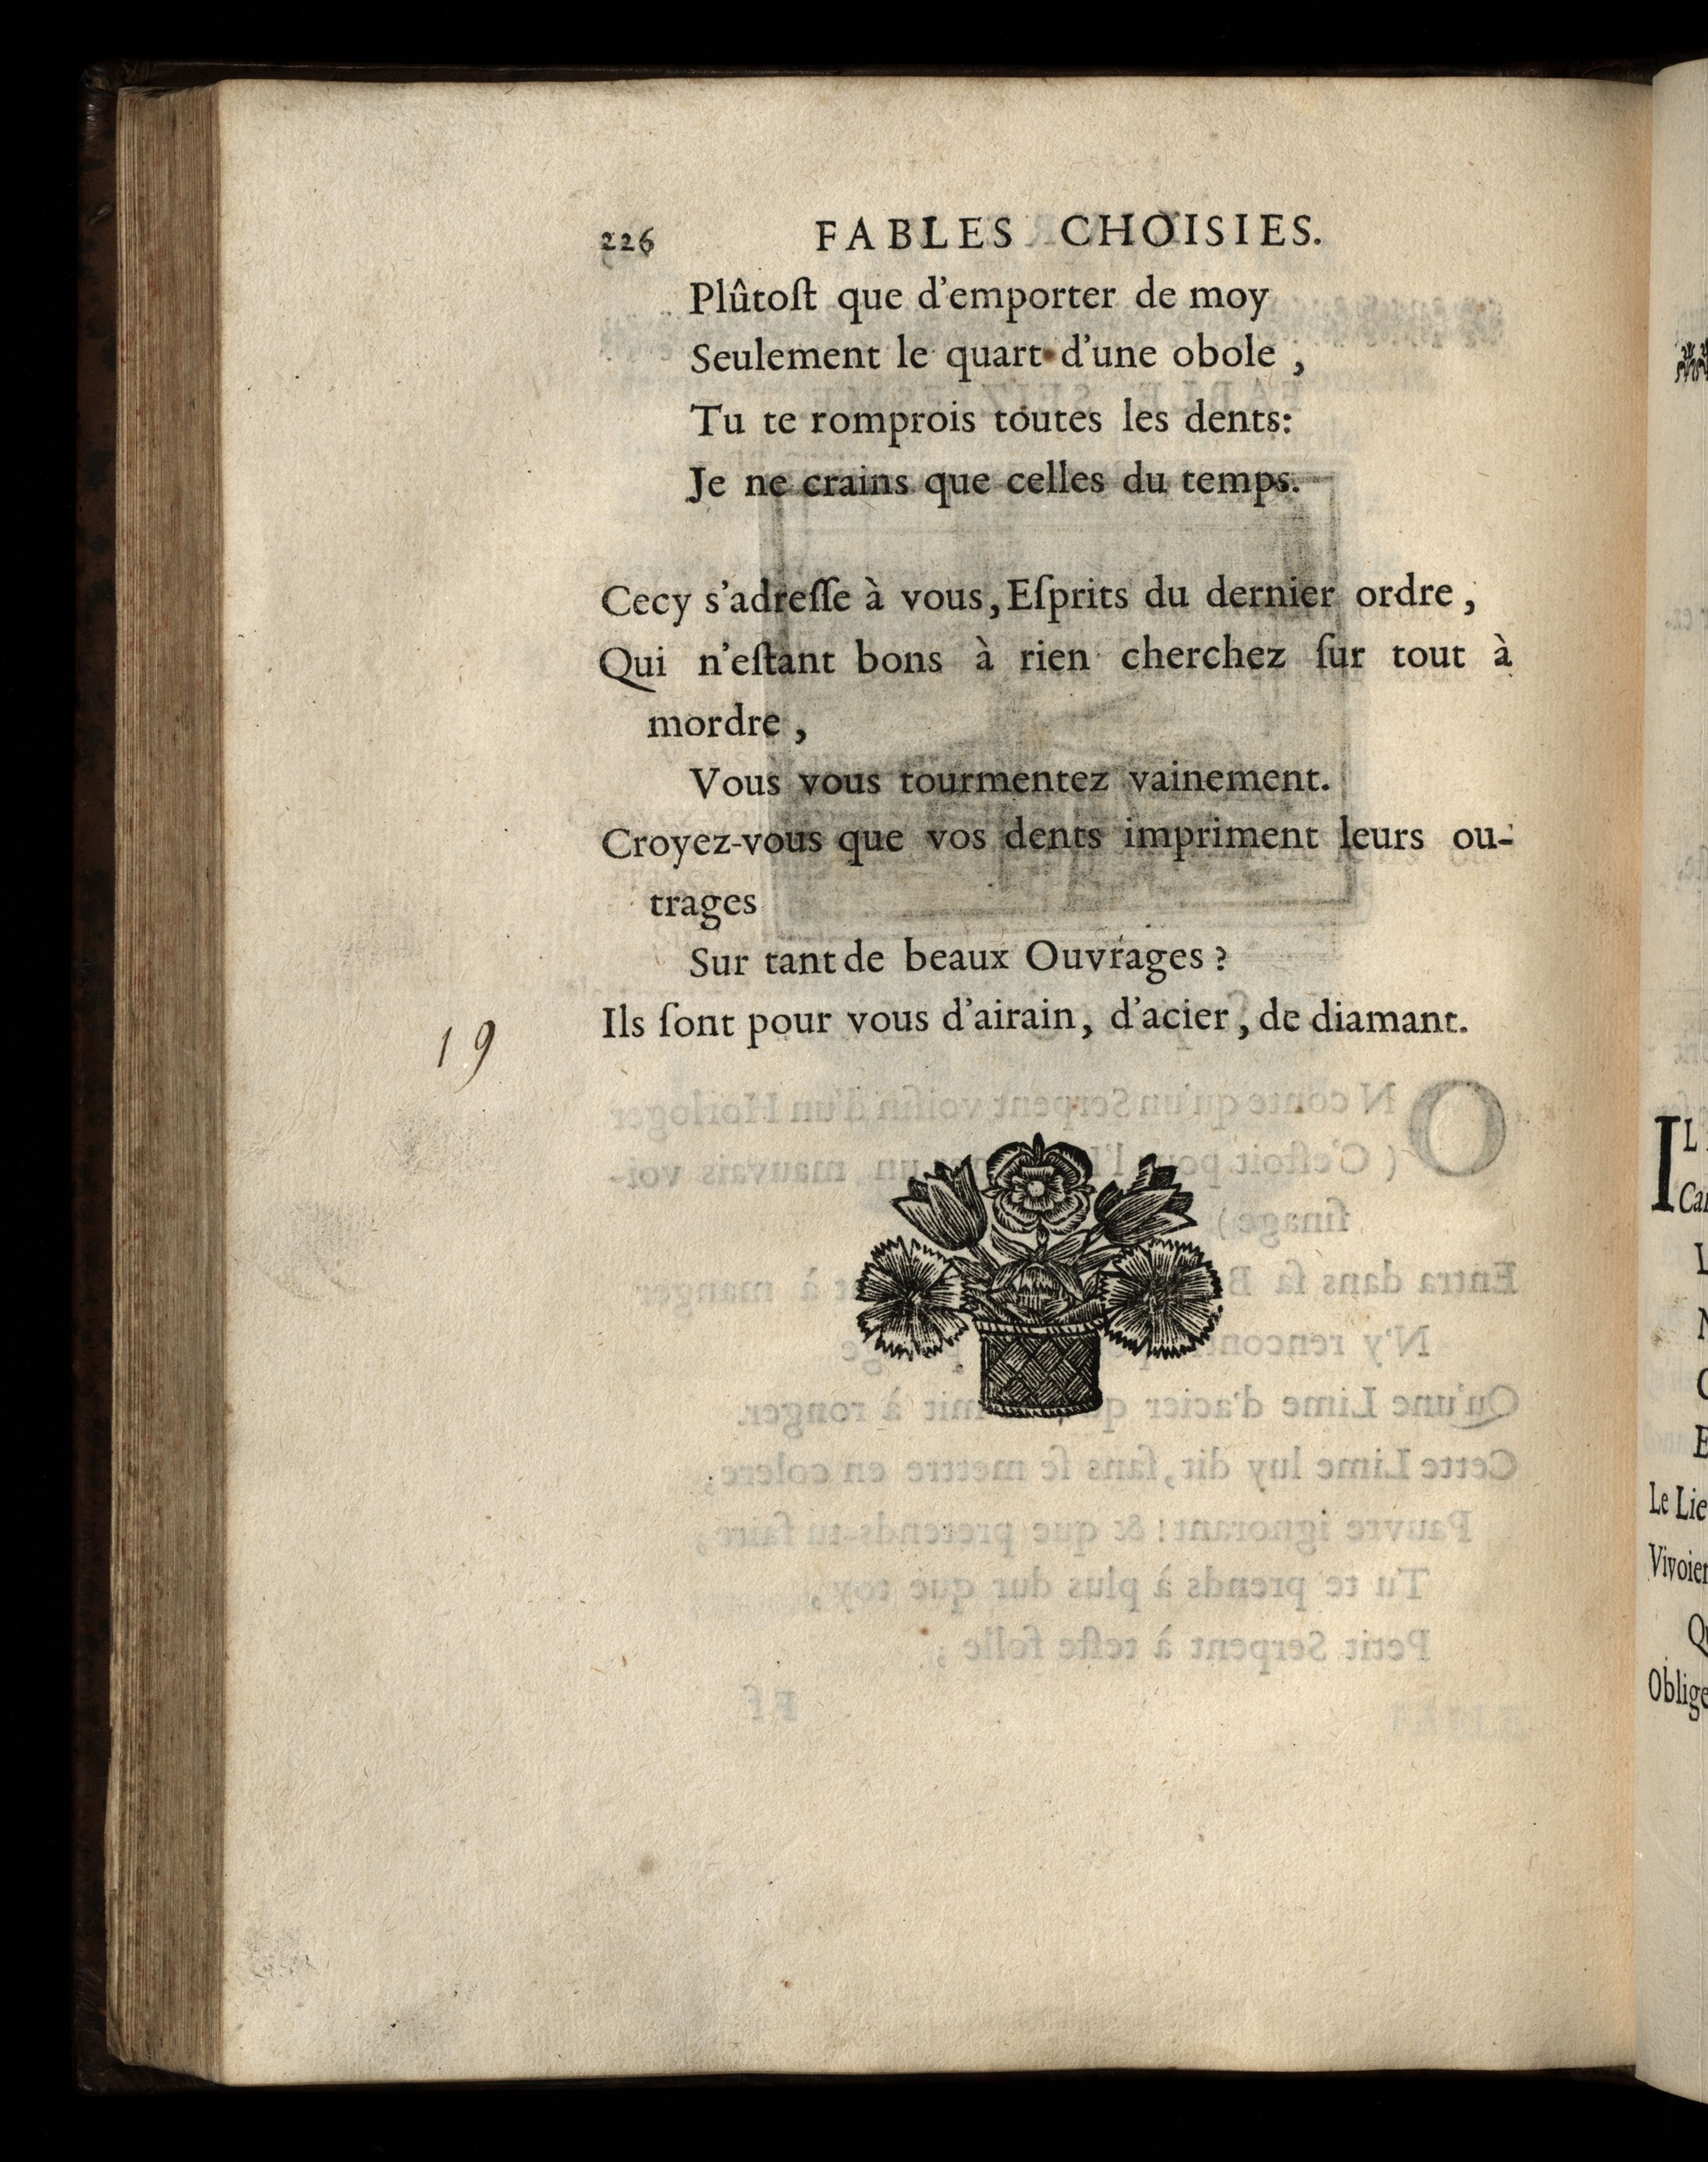 226 FABLES CHOISIES.
Plûtoſt que d'emporter de moy
Seulement le quart d'une obole ,
Tu te romprois toutes les dents:
Je ne crains que celles du temps.
Cecy s'adreſſe à vous, Eſprits du dernier ordre ,
Qui n'eſtant bons à rien cherchez ſur tout à
mordre ,
Vous vous tourmentez vainement.
Croyez-vous que vos dents impriment leurs ou-
trages
Sur tant de beaux Ouvrages ?
Ils ſont pour vous d'airain, d'acier, de diamant.
19
IL
Le Lie
Vivoien
Oblige